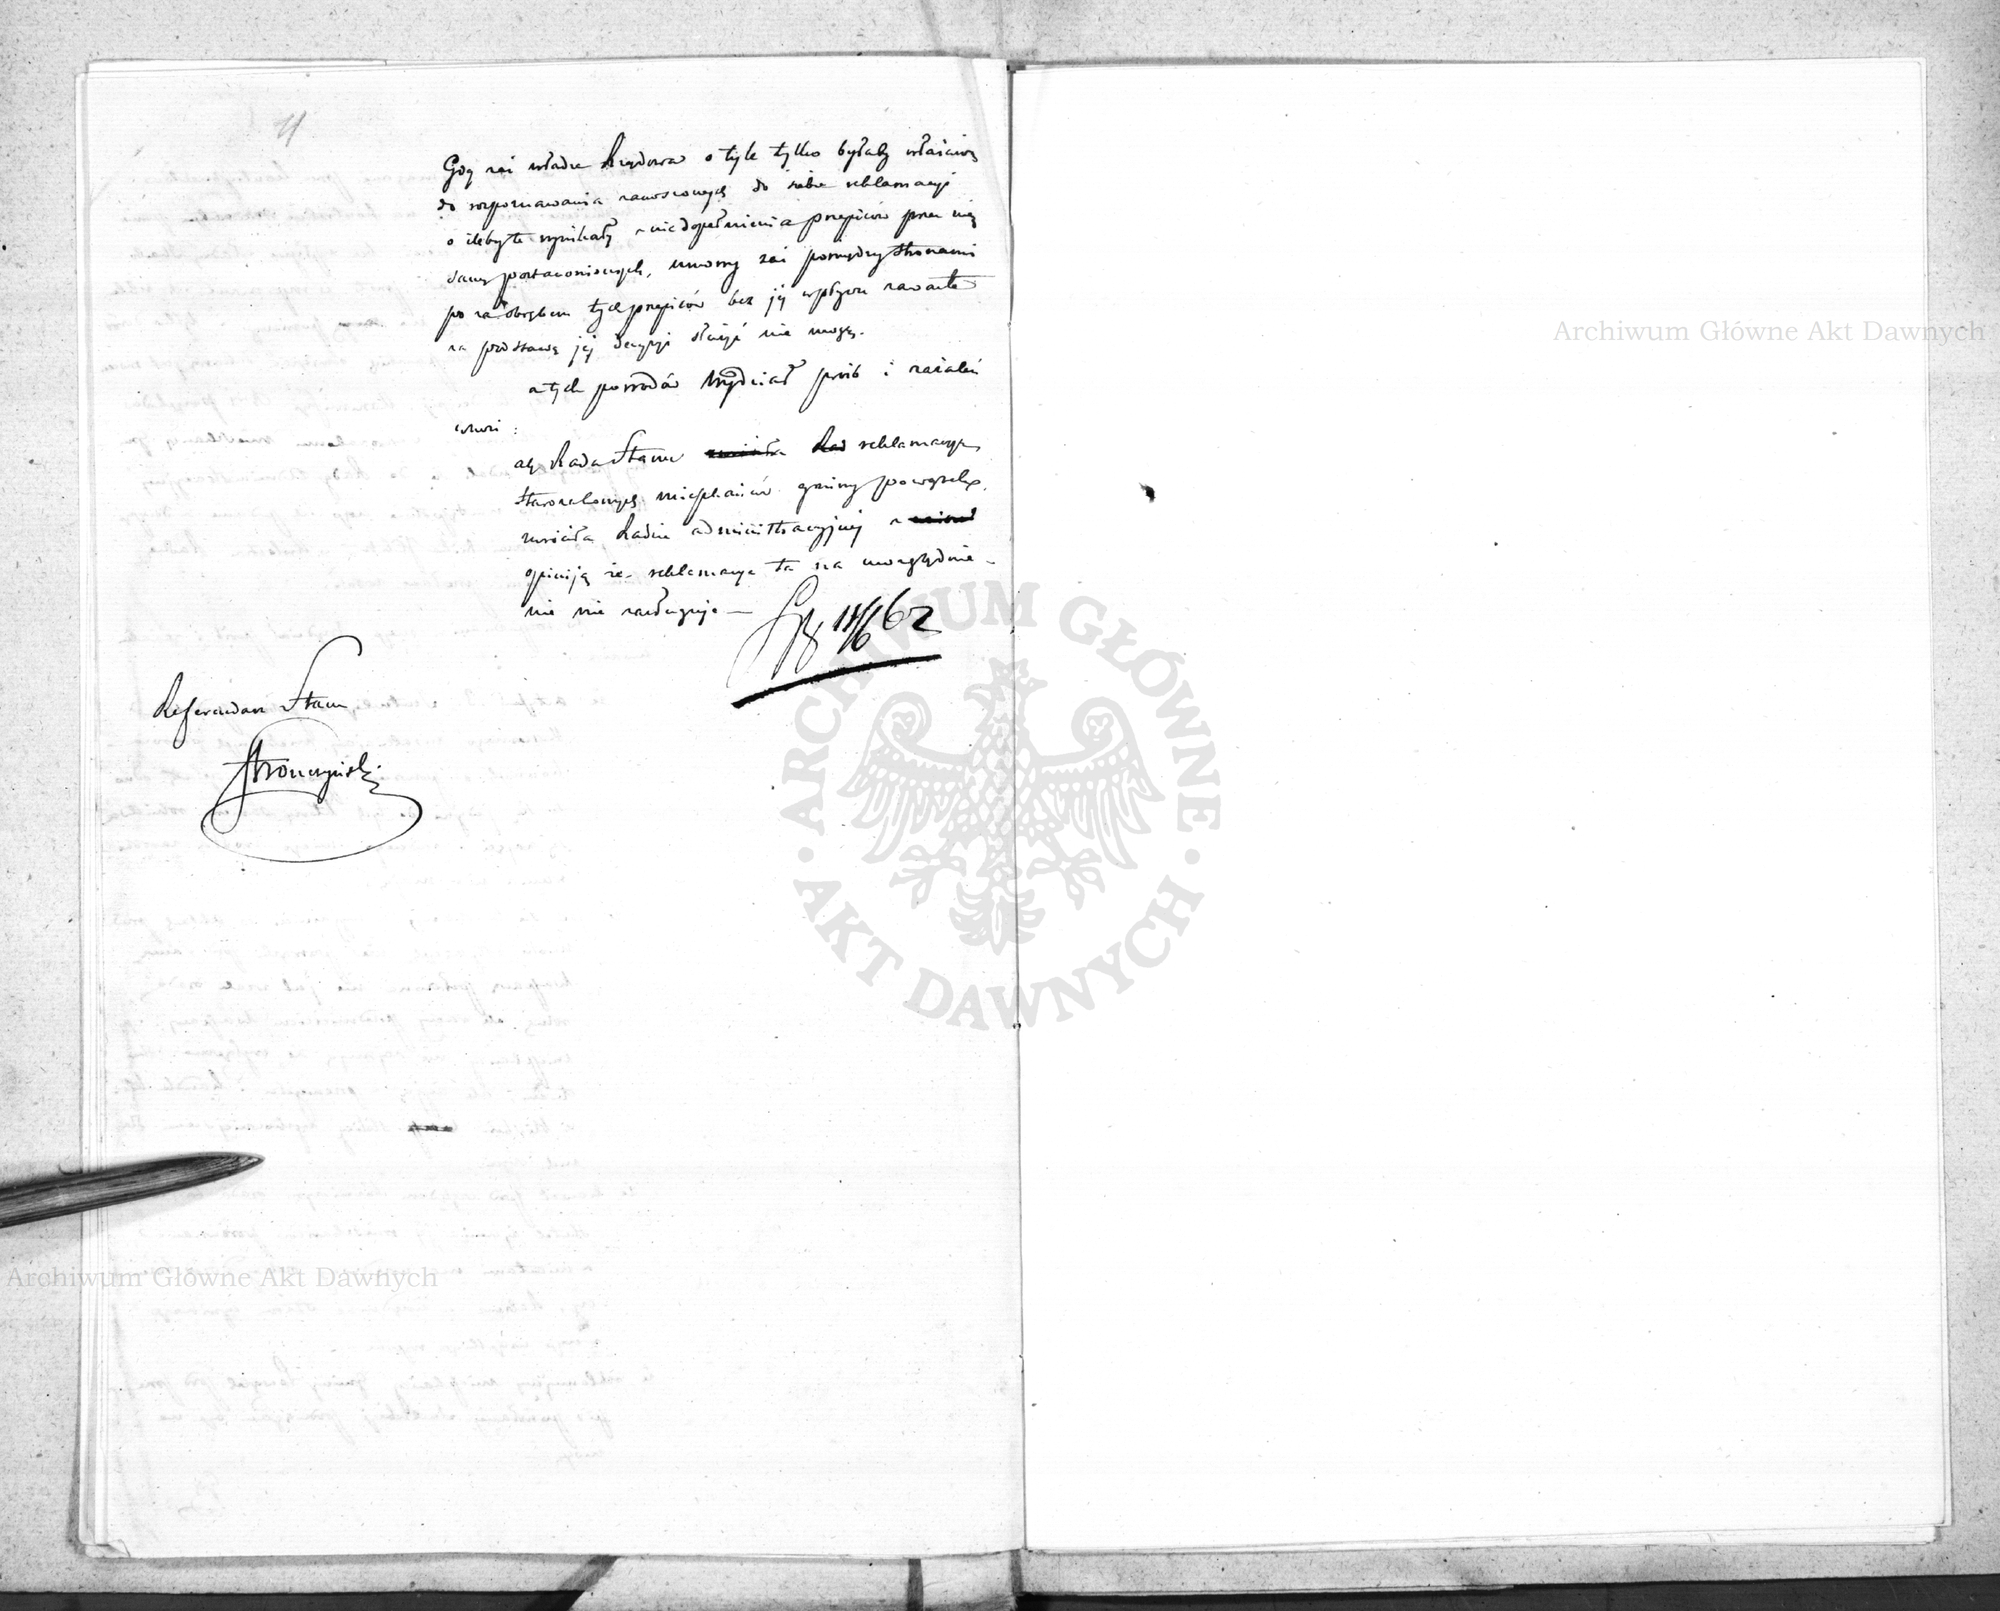 Gdy zaś władza Rządowa o tyle tylko byłaby właściwą
do rozpoznawania zanoszonych do siebie reklamacyi
o ileby te wynikały z niedopełnienia przepisów przez nią
samą postanowionych, umowy zaś pomiędzy stronami
po za obrębem tych przepisów bez jej wpływu zawarte
za podstawę jej decyzyi służyć nie mogą.
z tych powodów Wydział prośb i zażaleń
wnosi:
aby Rada Stanu reklamacyę
starozakonnych mieszkańców gminy
zwróciła Radzie administracyjnej z
opiniją że reklamacya ta na uwzględnie-
nie nie zasługuje —
62
Referendarz Stanu
Stronczyński
Archiwum Główne Akt Dawnych
Archiwum Główne Akt Dawnych
ARCHIWUM GŁÓWNE · AKT DAWNYCH ·